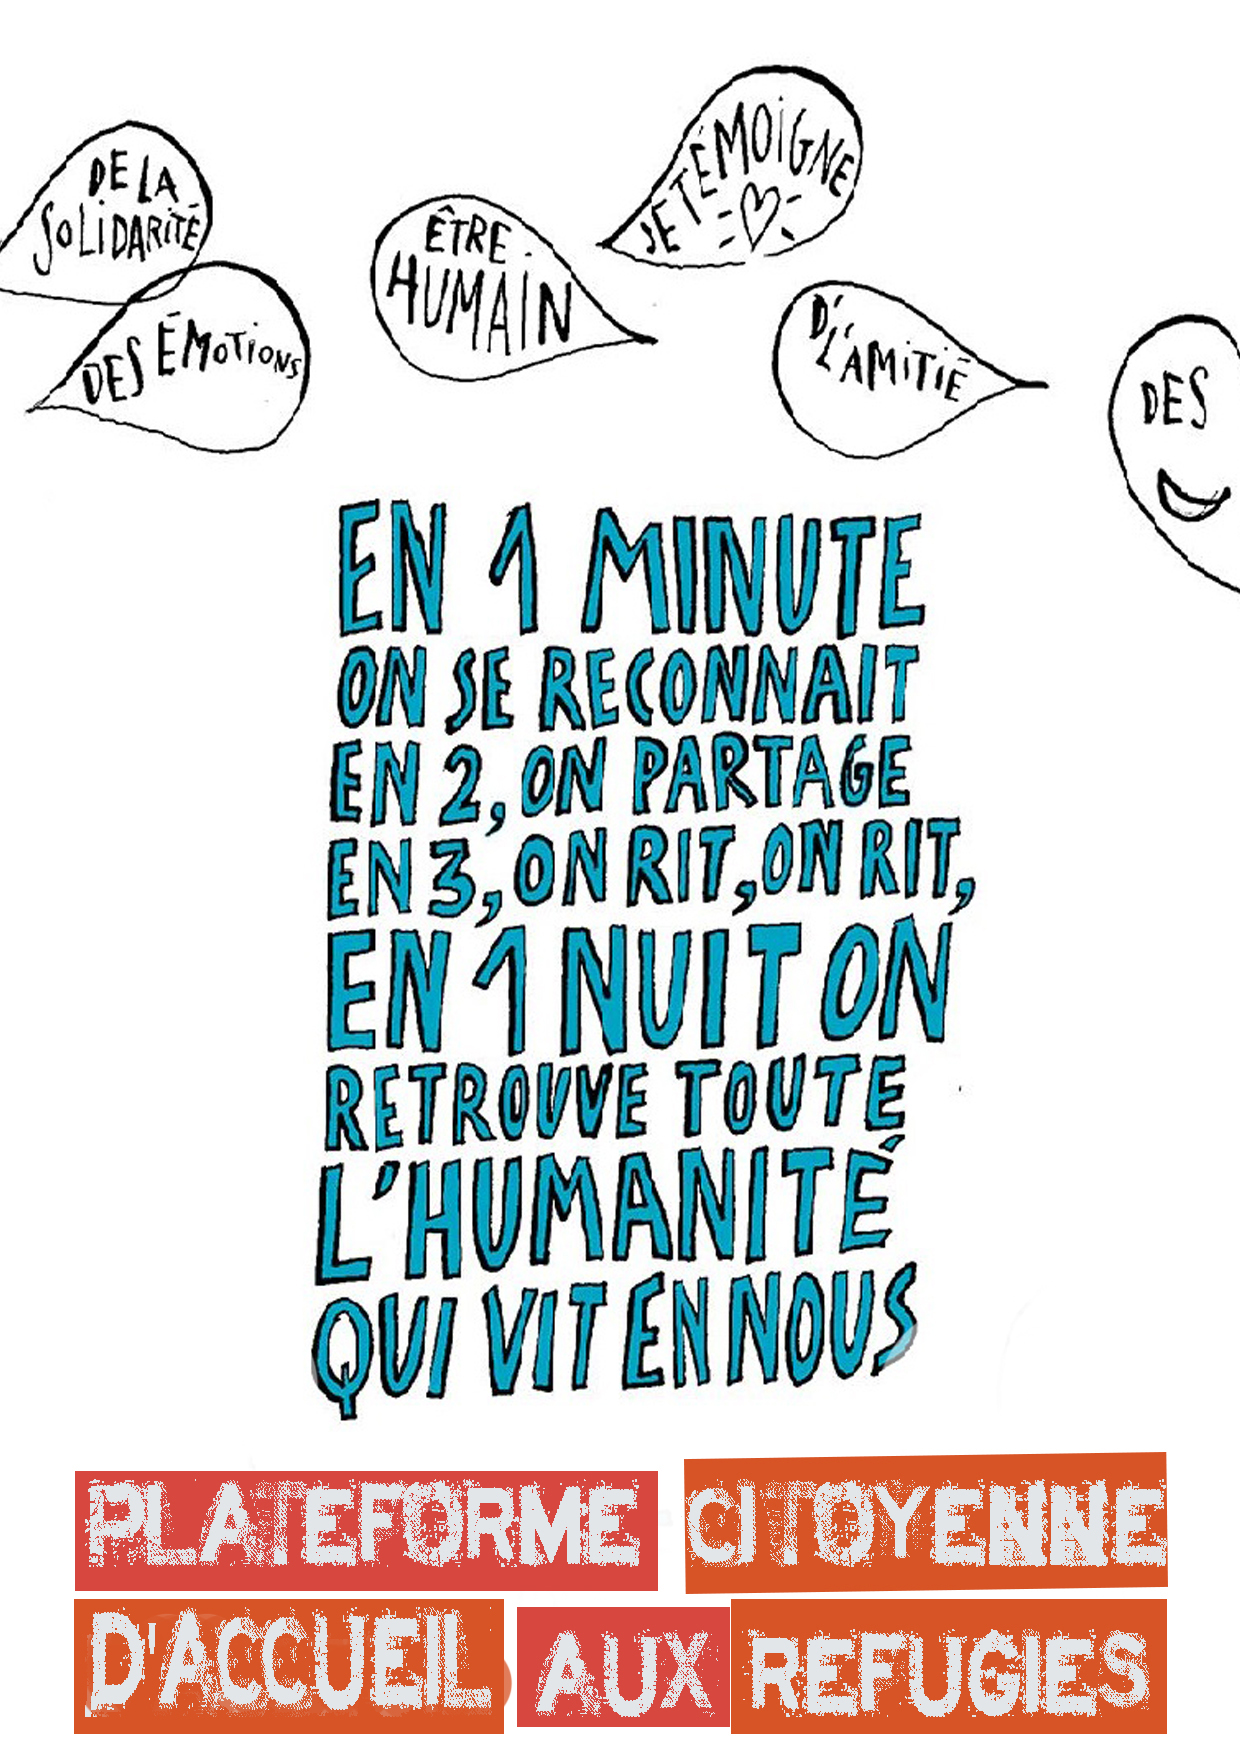 DE LA
SOLIDARITÉ
DES ÉMOTIONS
ÊTRE
HUMAIN
JE TÉMOIGNE
D'
L'AMITIÉ
DES
EN 1 MINUTE
ON SE RECONNAIT
EN 2, ON PARTAGE
EN 3, ON RIT, ON RIT,
EN 1 NUIT ON
RETROUVE TOUTE
L'HUMANITÉ
QUI VIT EN NOUS
PLATEFORME CITOYENNE
D'ACCUEIL AUX REFUGIES